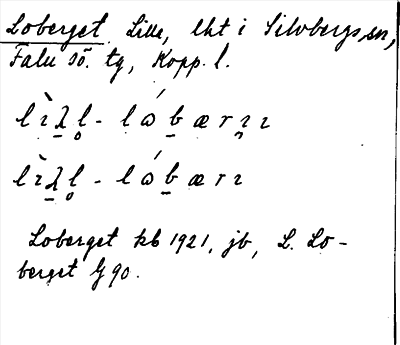 Loberget Lilla, lht i Silvbergs sn,
Falu sö. tg, Kopp. l.
lìƛl̥- lώb̠ærɪ̯ɪ
lìƛl̥- lώb̠ærɪ
Loberget kb 1921, jb, L. Lo-
berget G 90.